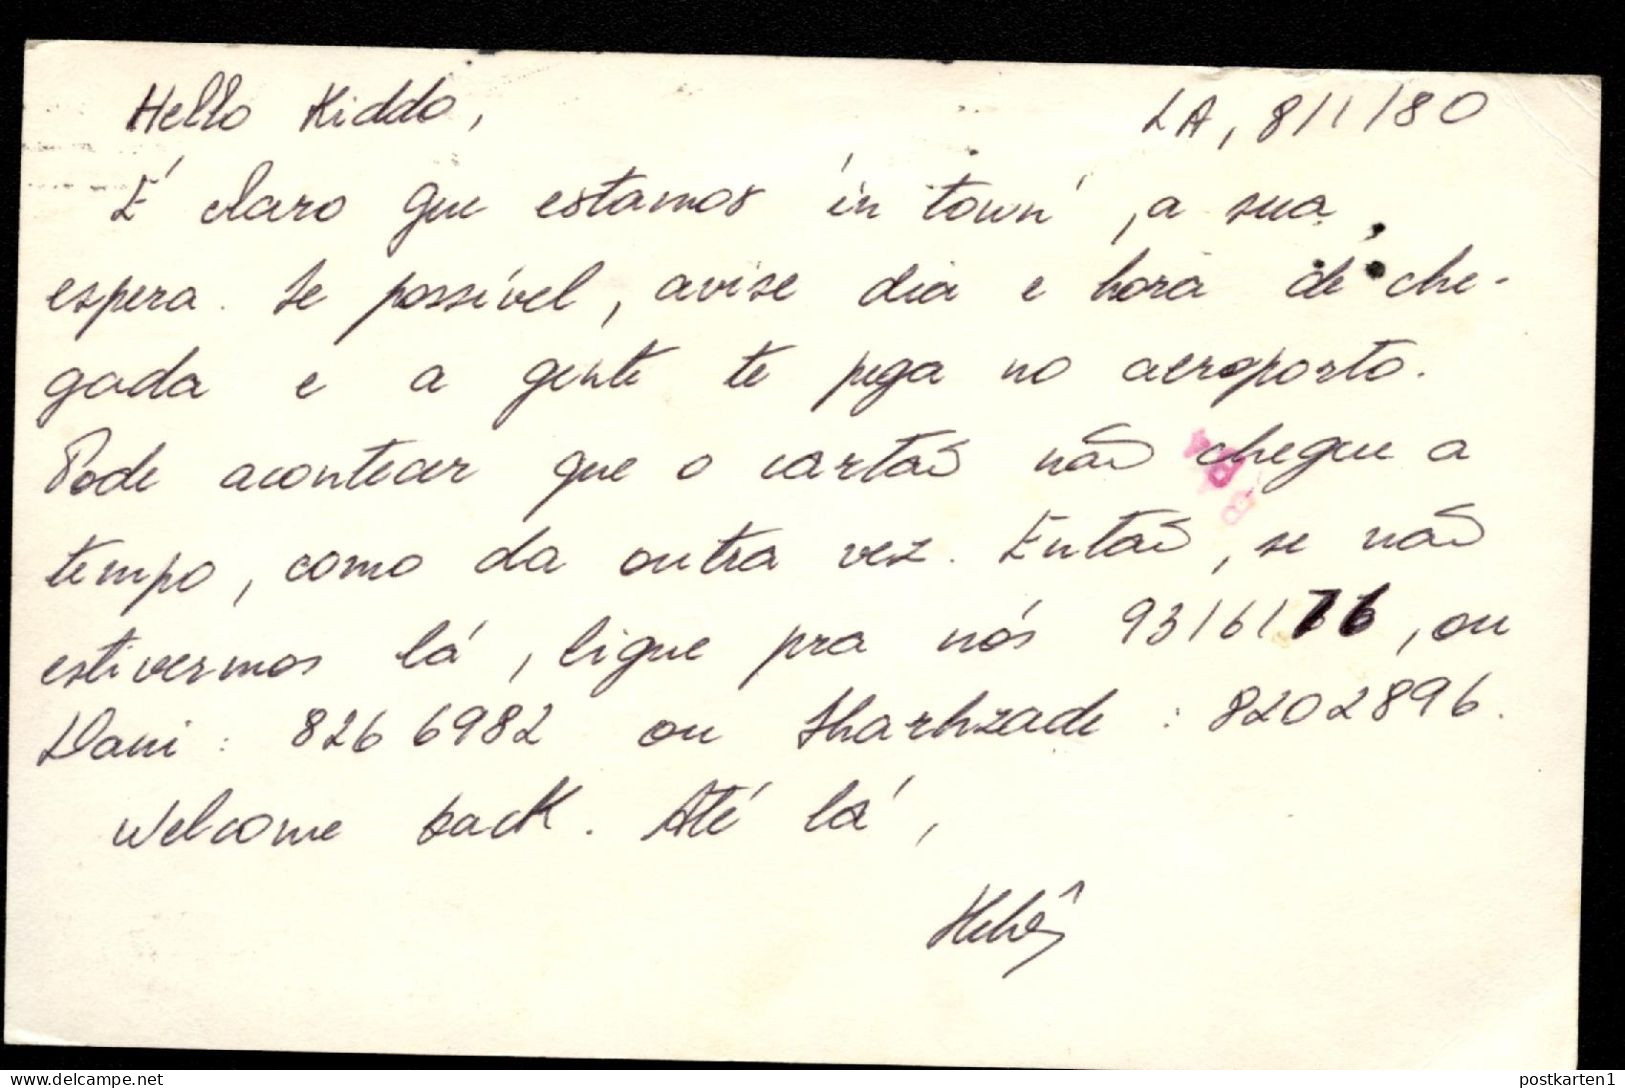 Hello Kiddo, LA, 8/1/80
É claro que estamos 'in town', a sua
espera. Se possível, avise dia e hora de che-
gada e a gente te pega no aeroporto.
Pode acontecer que o cartão não chegue a
tempo, como da outra vez. Então, se não
estivermos lá, ligue pra nós 9316176, ou
Dani: 826 6982 ou Sharhzade: 8202896.
Welcome back. Até lá,
postkarten1